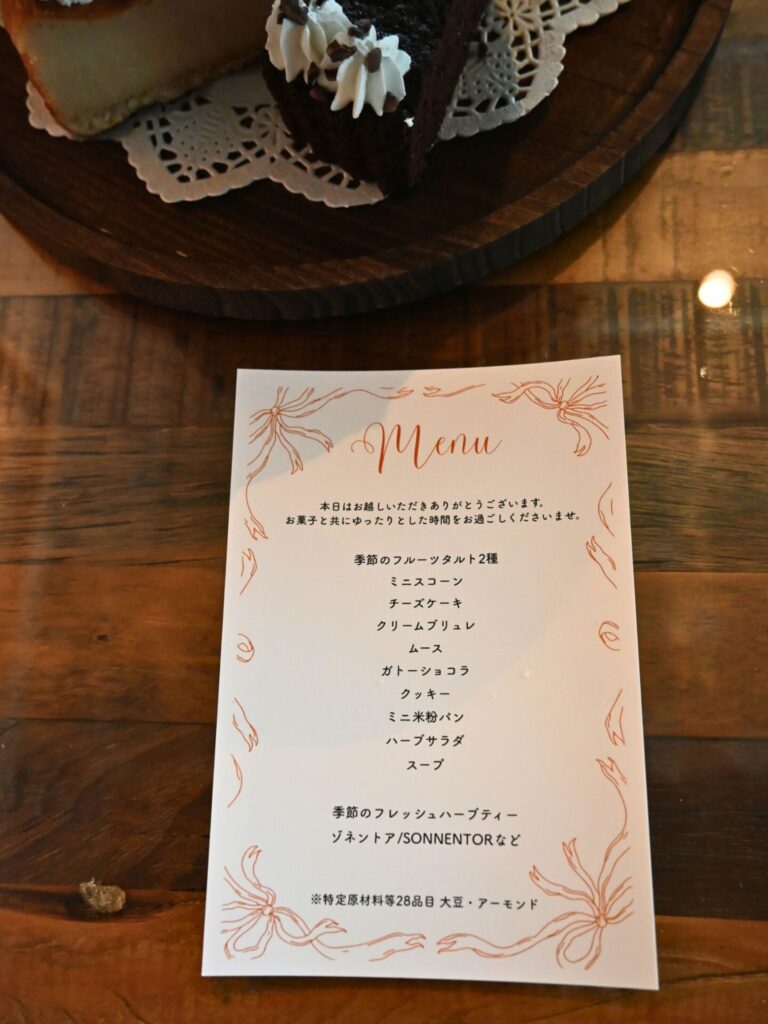 Menu
本日はお越しいただきありがとうございます。
お菓子と共にゆったりとした時間をお過ごしくださいませ。
季節のフルーツタルト2種
ミニスコーン
チーズケーキ
クリームブリュレ
ムース
ガトーショコラ
クッキー
ミニ米粉パン
ハーブサラダ
スープ
季節のフレッシュハーブティー
ゾネントア/SONNENTORなど
※特定原材料等28品目 大豆・アーモンド